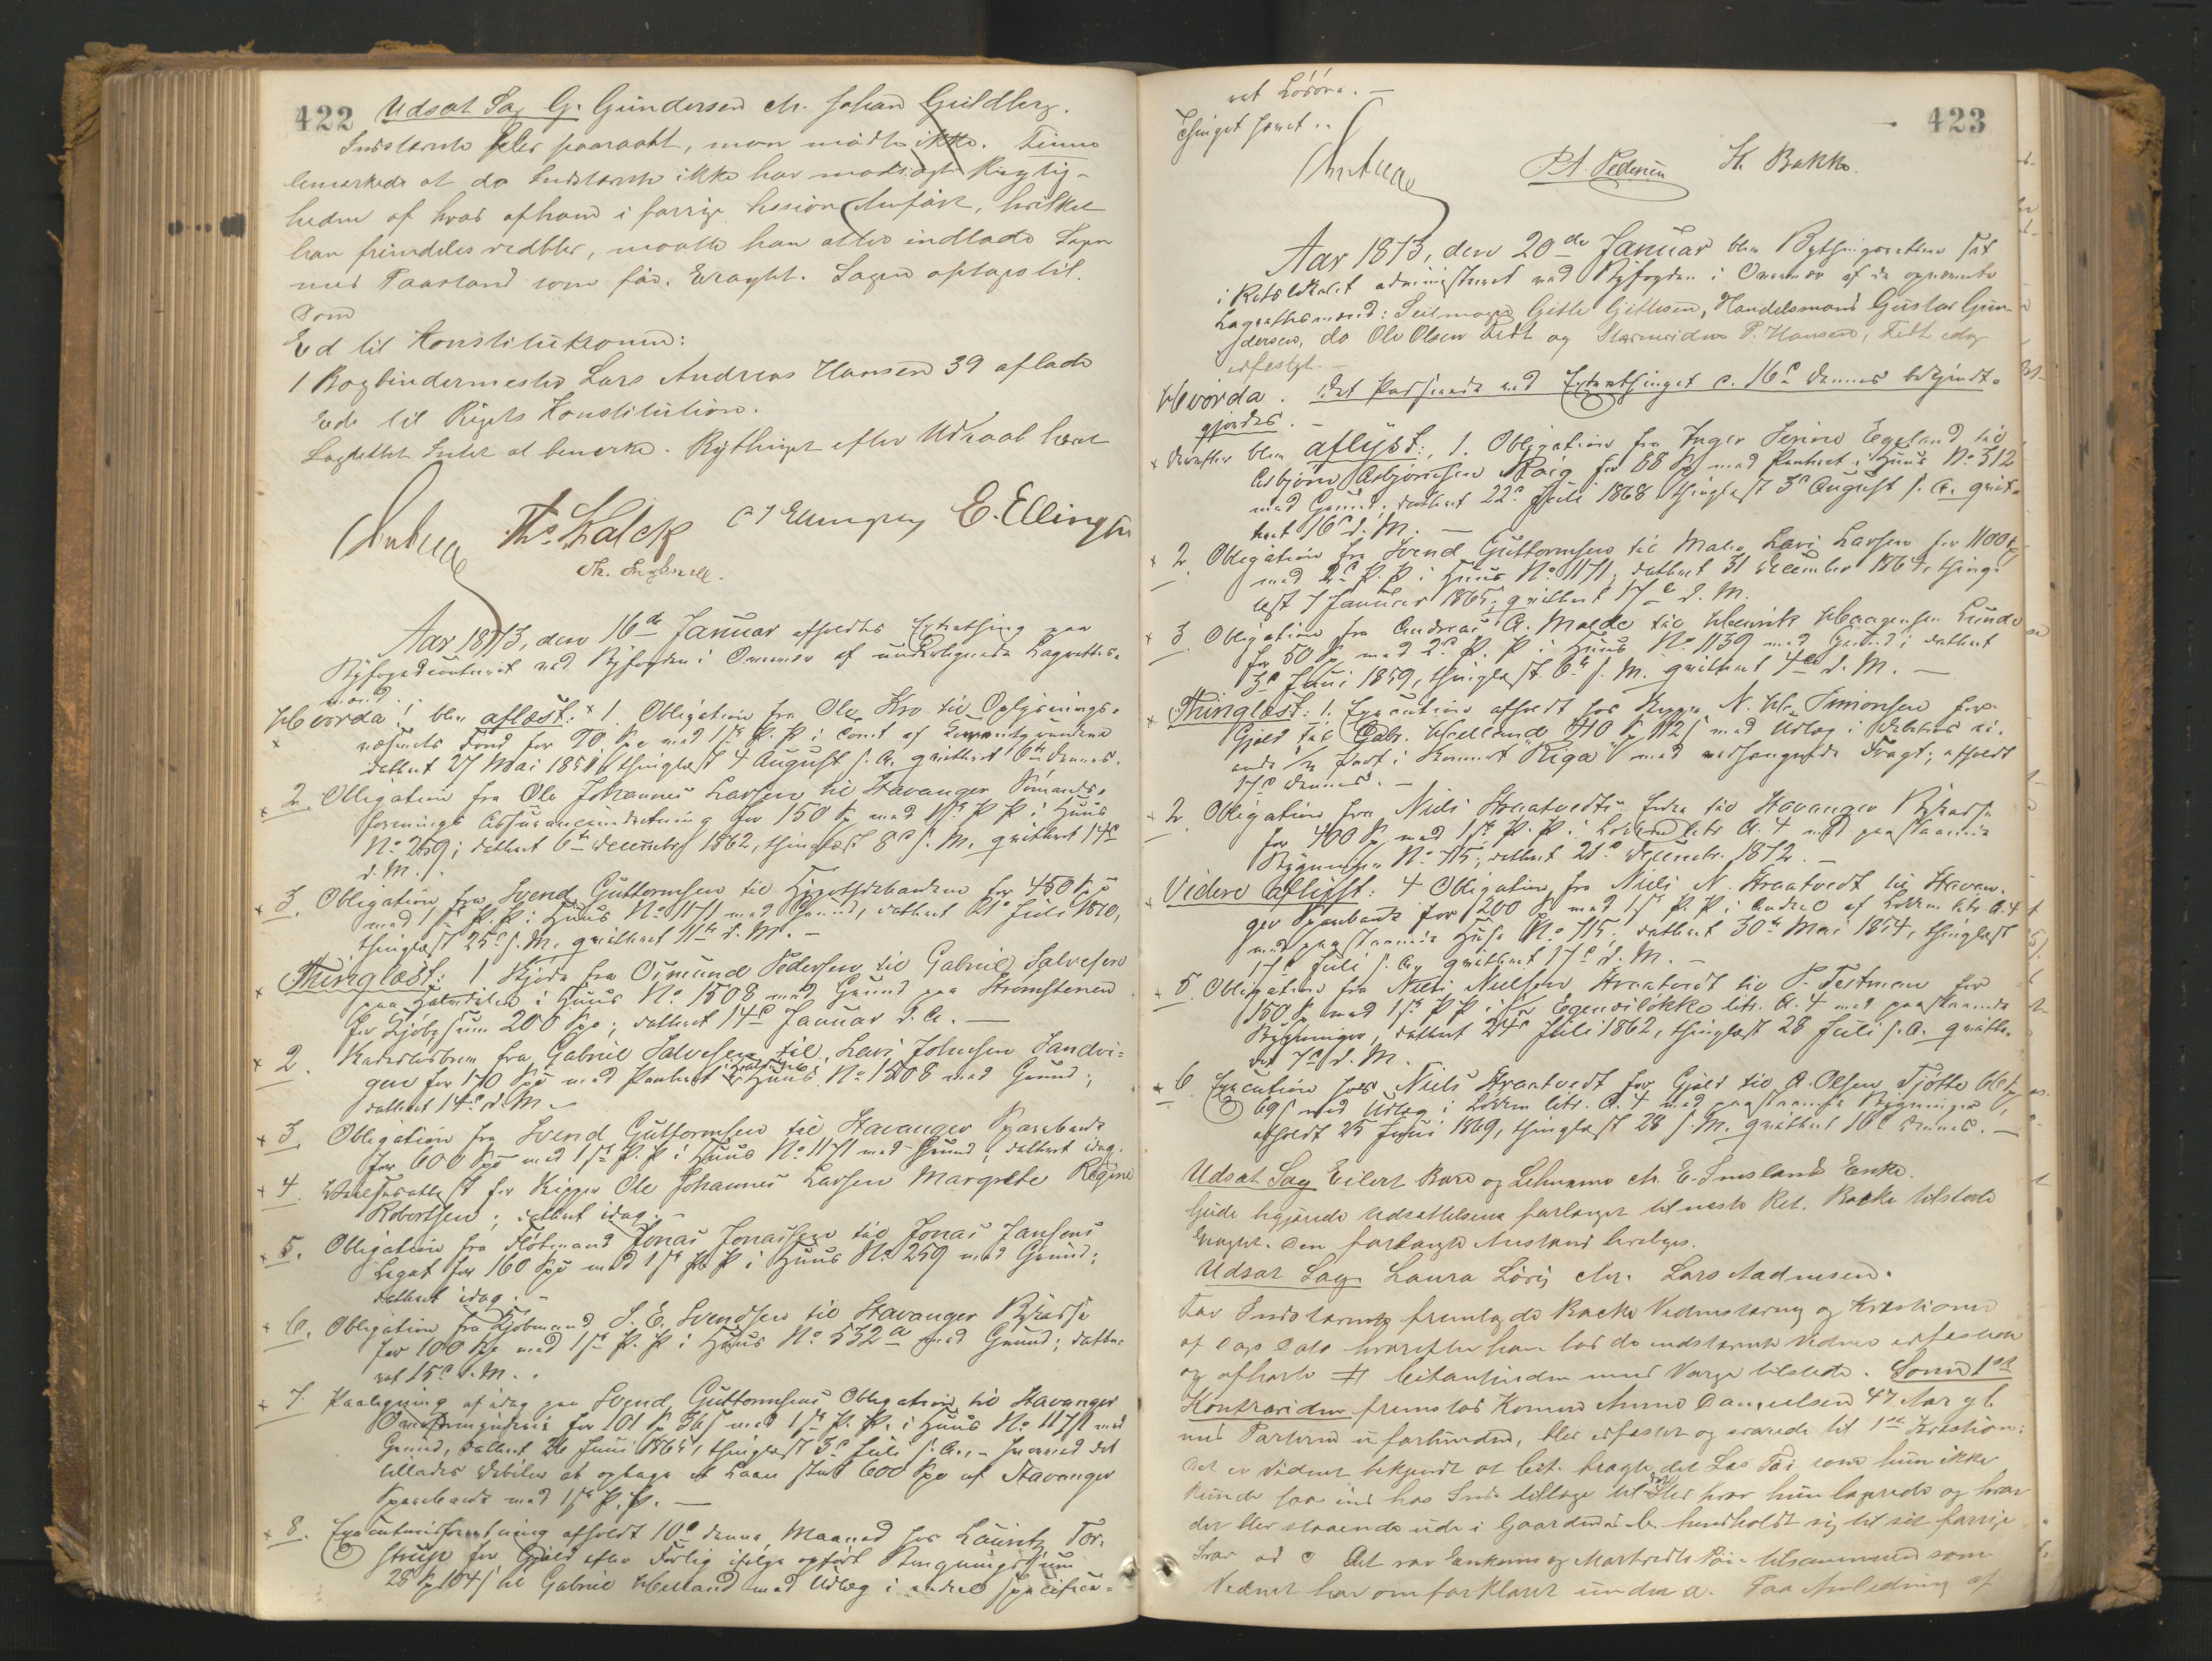 422
Udsat Sag G. Gundersen ctr. Johan Guldberg.
Indstævnte blev paaraabt, men mødte ikke. Finne
bemærkede at da Indstævnte ikke har modsagt Rigtig-
heden af hvad af ham i forrige Session anført, hvilket
han fremdeles vedblev, maatte han atter indlade Sagen
med Paastand som før. Eragtet. Sagen optages til
Dom
Ed til Konstitutionen:
1 Bogbindermester Lars Andreas Hansen 39 aflagde
Ed til Rigets Konstitution.
Lagrettet Intet at bemærke. Bythinget efter Udraab hævet
Ths. Falck E. Elling
Aar 1873, den 16de Januar afholdtes Extrathing paa
Byfogedcontoiret ved Byfogden i Overvær af undertegnede Lagrettes-
mænd.
Hvorda: blev aflæst: 1. Obligation fra Ole Kro til Oplysnings-
væsenets Fond for 90 Spd med 1ste P. P. i
datteret 27 Mai 1851, thinglæst 4 August s. A. qvitteret 6te dennes.
2. Obligation fra Ole Johannes Larsen til Stavanger Sømands-
forenings Assuranceindretning for 150 Sp med 1ste P. P. i Huus
No 259; datteret 6te December 1862, thinglæst 8de s. M. qvitteret 14de
d. M.
3. Obligation fra Svend Guttormsen til Hypothekbanken for 450 Spd
med 1ste P. P. i Huus No 1171 med Grund, datteret 21de Juli 1870,
thinglæst 25de s. M. qvitteret 11te d. M. —
Thinglæst: 1. Skjøde fra Osmund Pedersen til Gabriel Salvesen
paa Halvdelen i Huus No 1508 med Grund paa Strømstenen
for Kjøbesum 200 Spd; datteret 14de Januar d. A. —
2. Kadastbrev fra Gabriel Salvesen til Lars Johnsen Sandvi-
gen for 170 Spd med Panteret i Halvdelen i Huus No 1508 med Grund;
datteret 14de d. M. —
3. Obligation fra Svend Guttormsen til Stavanger Sparebank
for 600 Spd med 1ste P. P. i Huus No 1171 med Grund; datteret idag.
4. for Skipper Ole Johannes Larsen Margrete Regine
Robertsen; datteret idag. —
5. Obligation fra Fløtmand Jonas Jonassen til Jonas Jansens
Legat for 160 Spd med 1ste P. P. i Huus No 259 med Grund;
datteret idag. —
6. Obligation fra Kjøbmand S. E. Svendsen til Stavanger Bykasse
for 100 Spd med 1ste P. P. i Huus No 532a med Grund; datte-
ret 15de d. M.
7. Paategning af idag paa Svend Guttormsens Obligation til Stavanger
for 101 Sp 36 s med 1ste P. P. i Huus No 1171 med
Grund, datteret 26 Juni 1865, thinglæst 3de Juli s. A., — hvorved det
tillades Debitor at optage et Laan stort 600 Spd af Stavanger
Sparebank med 1ste P. P. —
8. Executionsforretning afholdt 10de denne Maaned hos Lauritz Tor-
strup for Gjæld efter Forlig ifølge opført
28 Sp 104 s til Gabriel Helland med Udlæg i endeel specifice-
423
ret Løsøre. —
Thinget hævet..
P. A. Pedersen H. Bakke.
Aar 1873, den 20de Januar blev Bythingsretten sat
i Retslokalet administreret ved Byfogden i Overvær af de opnævnte
Lagrettesmænd: Seilmager Gitle Gitlesen, Handelsmand Gustav Gun-
dersen, do Ole Olsen Fedt og P. Hansen, Fedt edag
edfæstet. —
Hvorda. det Passerede ved Extrathinget d. 16de dennes bekjendt-
gjordes. —
derefter blev aflyst: 1. Obligation fra Inger Serine Egeland til
Asbjørn Asbjørnsen for 68 Sp med Panteret i Huus No 312
med Grund, datteret 22de Juli 1868 thinglæst 3de August s. A. qvit-
teret 16de d. M. —
2. Obligation fra Svend Guttormsen til Maler Lars Larsen for 1100 Sp
med 2de P. P. i Huus No 1171; datteret 31 December 1864, thing-
læst 7 Januar 1865; qvitteret 17de d. M.
3. Obligation fra Andreas A. Malde til Henrik Haagensen Lunde
for 50 Sp med 2de P. P. i Huus No 1139 med Grund; datteret
3de Juni 1859, thinglæst 6te s. M. qvitteret 4de d. M. —
Thinglæst: 1. Execution afholdt hos Skipper N. Simonsen for
Gjæld til Gabr. Helland 410 Sp 112 s med Udlæg i Debitors ei-
ende Part i Skonnert Riga med vedhængende Fragt; afholdt
17de dennes. —
2. Obligation fra Niels Straatvedts til Stavanger Bykasse
for 400 Sp med 1ste P. P. i Løkken litr. A. 4 med paastaaende
Bygninger No 715; datteret 21de December 1872. —
Videre aflyst: 4 Obligation fra Niels N. Straatvedt til Stavan-
ger Sparebank for 1200 Sp med 1ste P. P. i Andeel af Løkken litr. A. 4
med paastaaende Huse No 715; datteret 30te Mai 1854, thinglæst
17de Juli s. A. qvitteret 17de d. M. —
5. Obligation fra Niels Nielsen Straatvedt til P. Testman for
150 Sp med 1ste P. P. i Egenesløkke litr. A. 4 med paastaaende
Bygninger, datteret 24de Juli 1862, thinglæst 28 Juli s. A. qvitte-
ret 7de d. M.
6. Execution hos Niels Straatvedt for Gjæld til A. Olsen Tjøtta
69 s med Udlæg i Løkken litr. A. 4 med paastaaende Bygninger,
afholdt 25 Juni 1869, thinglæst 28 s. M. qvitteret 16de dennes. —
Udsat Sag Eilert Bore og Lehmann ctr. E. Smslands Enke.
begjærede Udsættelsen forlænget til næste Ret. Bache tilstede
Eragtet. Den forlangte Anstand bevilges.
Udsat Sag Laura Lovig ctr. Lars Aadnesen.
For Indstævnte fremlagde Bache Vidnestævning og Krestioner
af Dags Dato hvorefter han lod de indstævnte Vidner edfæste
og afhørte # Citantinden med Værge tilstede. Som 1ste
Kontravidne fremstod Konen Anne Danielsen 47 Aar gl.
med Parterne uforbunden, blev edfæstet og svarede til 1ste Krestion:
Det er Vidnet bekjendt at Cit. bragte det Læs Tøi som hun ikke
kunde faa ind hos Inds. tillige til det Sted hvor hun lagrede og hvor
det blev staaende ude i Gaarden henholdt sig til sit forrige
Svar ad c Det var Enkens og Martvedts Tøi tilsammen som
Vidnet har omforklaret under a. Paa Anledning af